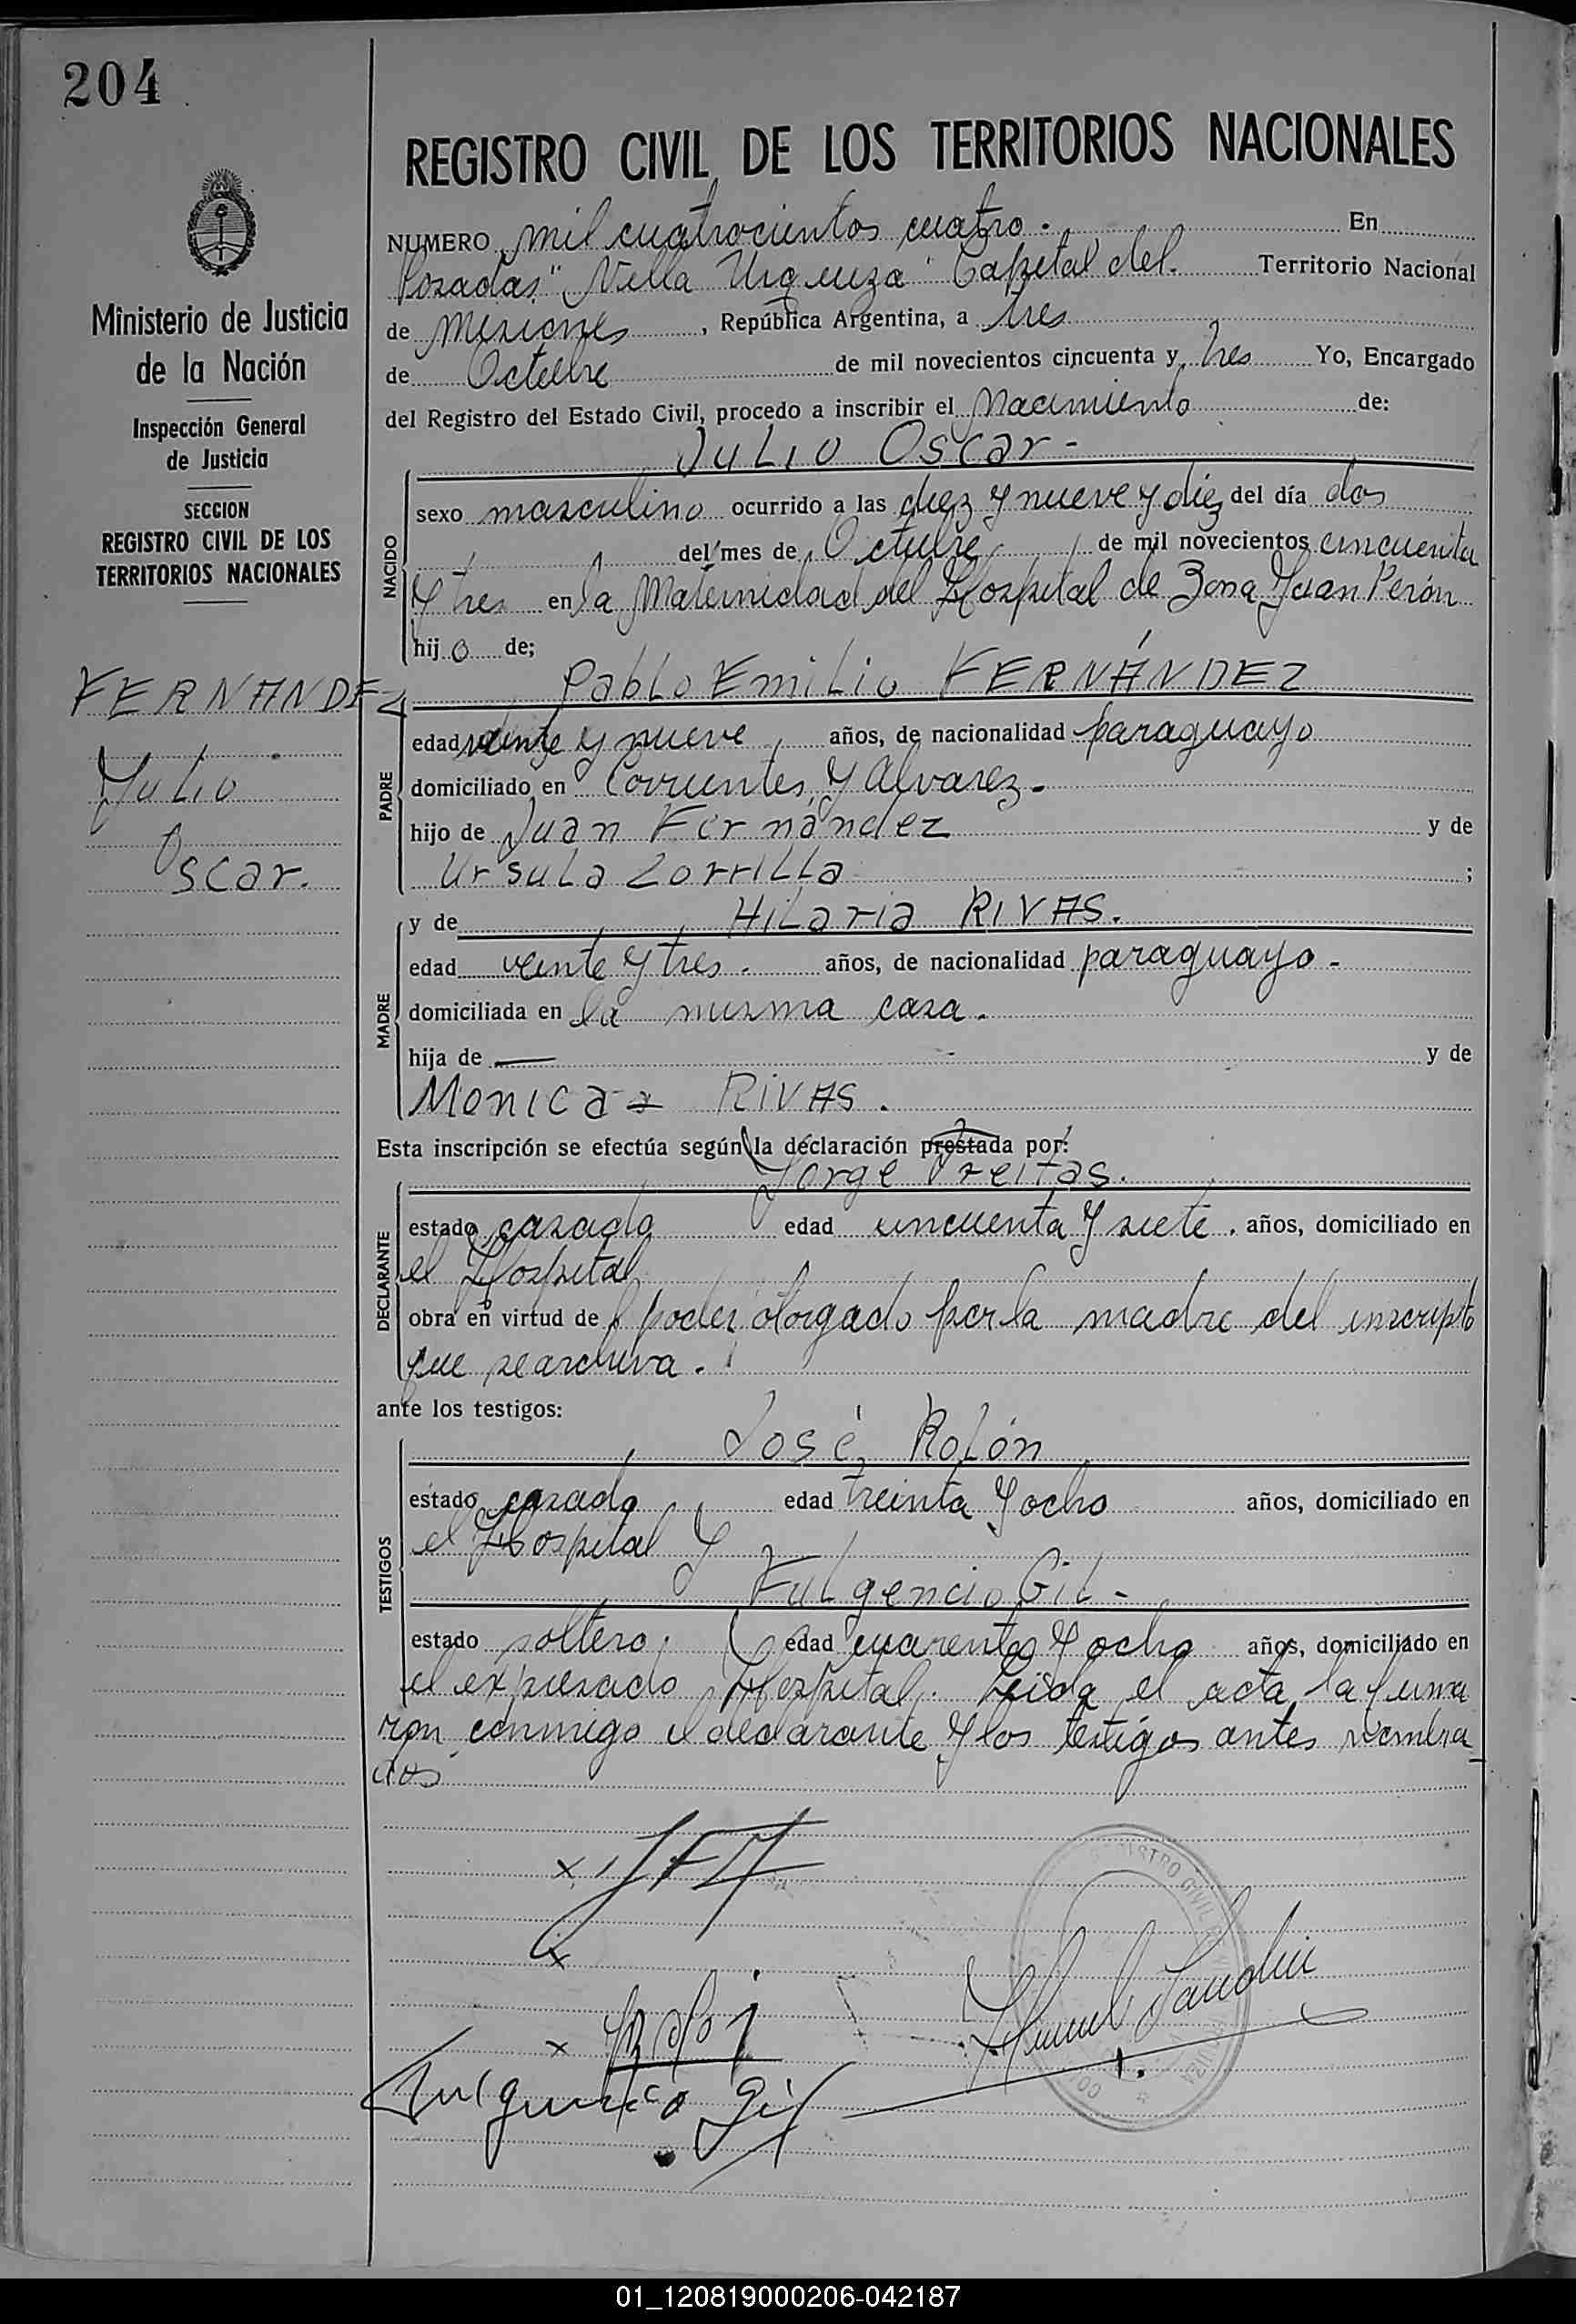 204
REGISTRO CIVIL DE LOS TERRITORIOS NACIONALES
NUMERO mil cuatrocientos cuatro. En
Posadas "Villa Urquiza" Capital del Territorio Nacional
de Misiones, República Argentina, a tres
de Octubre de mil novecientos cincuenta y tres Yo, Encargado
del Registro del Estado Civil, procedo a inscribir el Nacimiento de:
Julio Oscar-
NACIDO
sexo masculino ocurrido a las diez y nueve y diez del día dos
del mes de Octubre de mil novecientos cincuenta
y tres en la Maternidad del Hospital de Zona Juan Perón
hijo de;
Pablo Emilio FERNÁNDEZ
PADRE
edad veinte y nueve años, de nacionalidad paraguayo
domiciliado en Corrientes y Alvarez-
hijo de Juan Fernández y de
Ursula Zorrilla ;
MADRE
y de Hilaria RIVAS.
edad veinte y tres. años, de nacionalidad paraguayo-
domiciliada en la misma casa.
hija de — y de
Monica RIVAS.
Esta inscripción se efectúa según la declaración prestada por:
Jorge Freitas.
DECLARANTE
estado casado edad cincuenta y siete. años, domiciliado en
el Hospital
obra en virtud de poder otorgado por la madre del inscripto
que se archiva.
ante los testigos:
TESTIGOS
José Rolón
estado casado edad treinta y ocho años, domiciliado en
el Hospital y
Fulgencio Gil-
estado soltero. edad cuarenta y ocho años, domiciliado en
el expresado Hospital. Leida el acta la firma
ron conmigo el declarante y los testigos antes nombra-
dos
Fulguncio Gil
Ministerio de Justicia
de la Nación
Inspección General
de Justicia
SECCION
REGISTRO CIVIL DE LOS
TERRITORIOS NACIONALES
FERNANDEZ
Julio
Oscar.
01_120819000206-042187